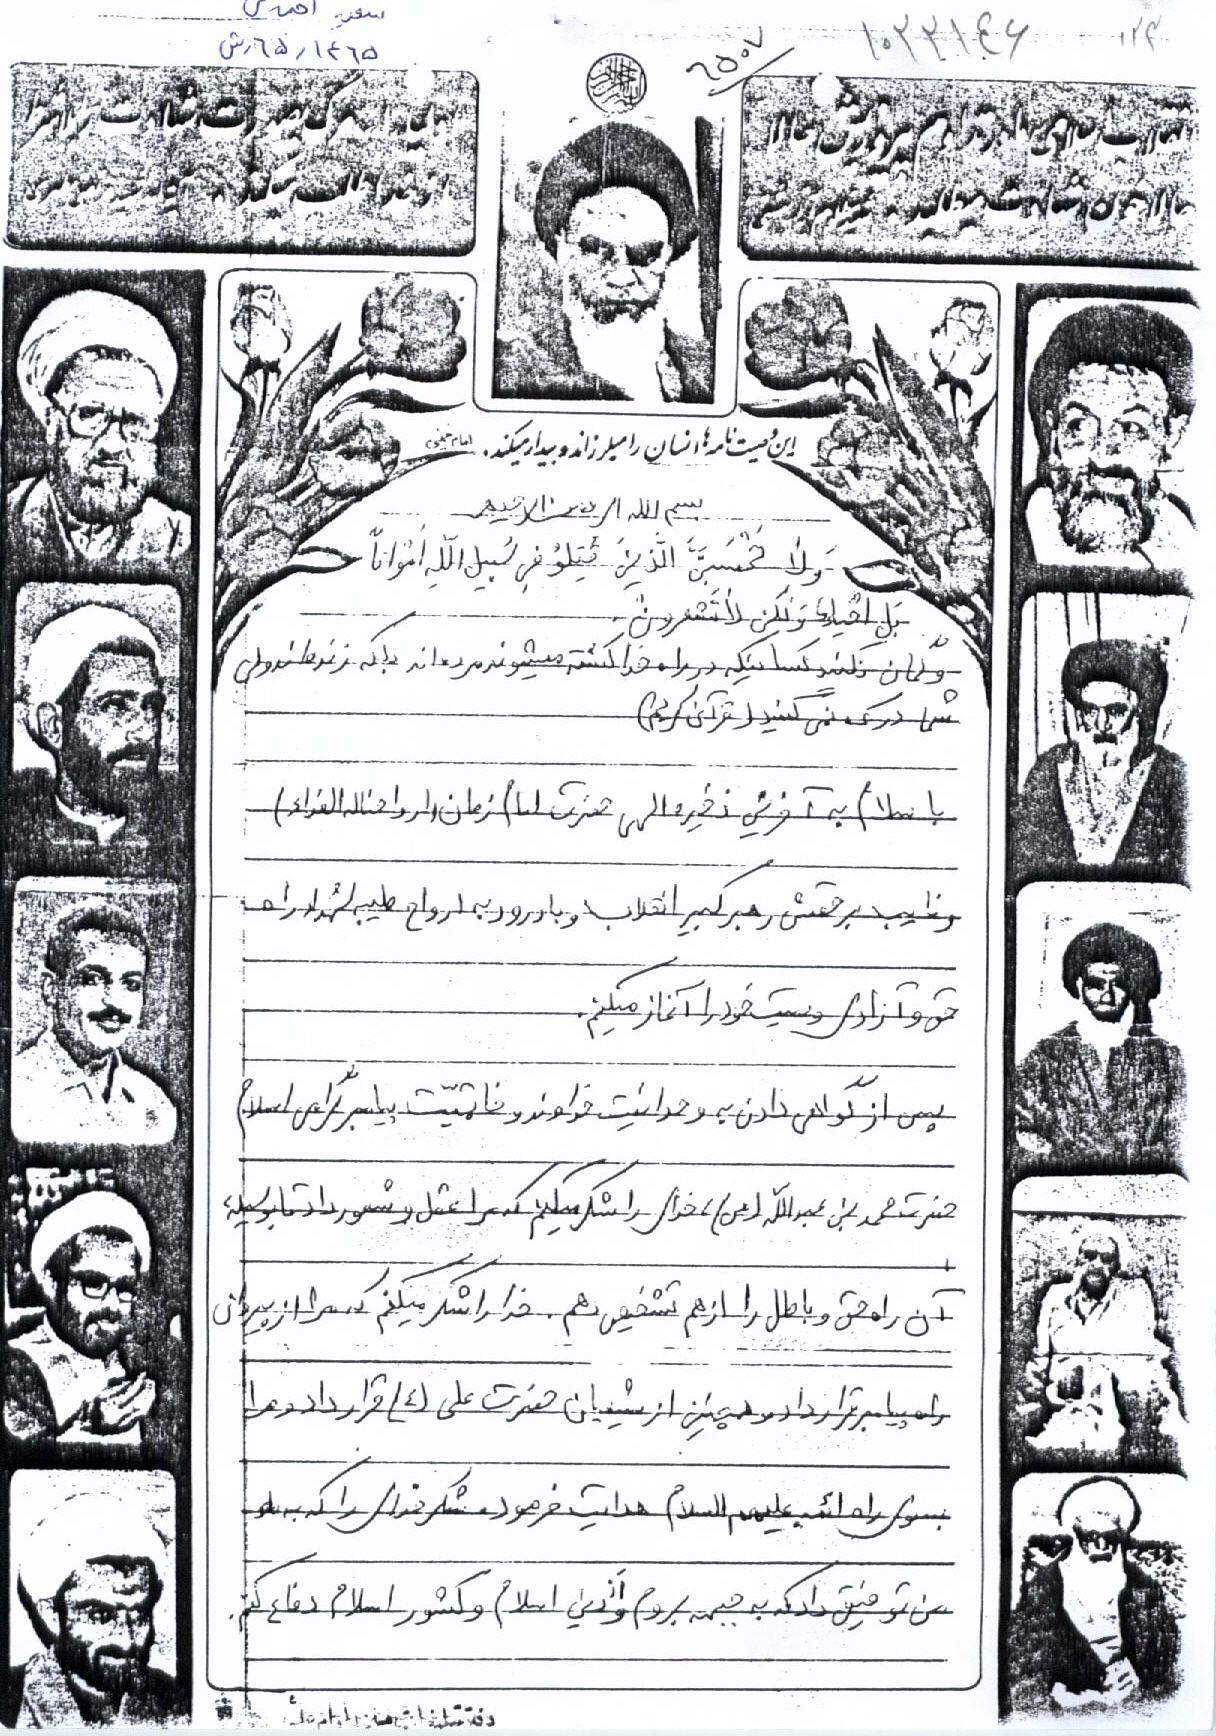 سعید احمدی
۱۴۶۵/۶۵/ش
۱۰۲۲۱۴۶
۶۵۰۷
این وصیت نامه‌ها انسان را میلرزاند و بیدار میکند. امام خمینی
بسم الله الرحمن الرحیم
وَلا تَحْسَبَنَّ الَّذینَ قُتِلُو فِی سَبیلِ اللّهِ اَمْواتاً
بَل اَحْیاءٌ وَلکِن لا تَشْعُرونَ.
و گمان نکنید کسانیکه در راه خدا کشته میشوند مرده‌اند بلکه زنده‌اند ولی
شما درک نمی‌کنید (قرآن کریم)
با سلام به آخرین ذخیره الهی حضرت امام زمان (ارواحنا له الفداء)
و نایب برحقش رهبر کبیر انقلاب و با درود به ارواح طیبه شهداء راه
حق و آزادی وصیت خود را آغاز میکنم.
پس از گواهی دادن به وحدانیّت خداوند و خاتمیّت پیامبر گرامی اسلام
حضرت محمد بن عبداللّه (ص)، خدای را شکر میکنم که مرا عقل و شعور داد تا بوسیله
آن راه حق و باطل را از هم تشخیص دهم. خدا را شکر میکنم که مرا از پیروان
راه پیامبر قرار داد و همچنین از شیعیان حضرت علی (ع) قرار داد و مرا
بسوی راه ائمه علیهم السلام هدایت فرمود. شکر خدای را که به
من توفیق داد که به جبهه بروم و از دین اسلام و کشور اسلام دفاع کنم.